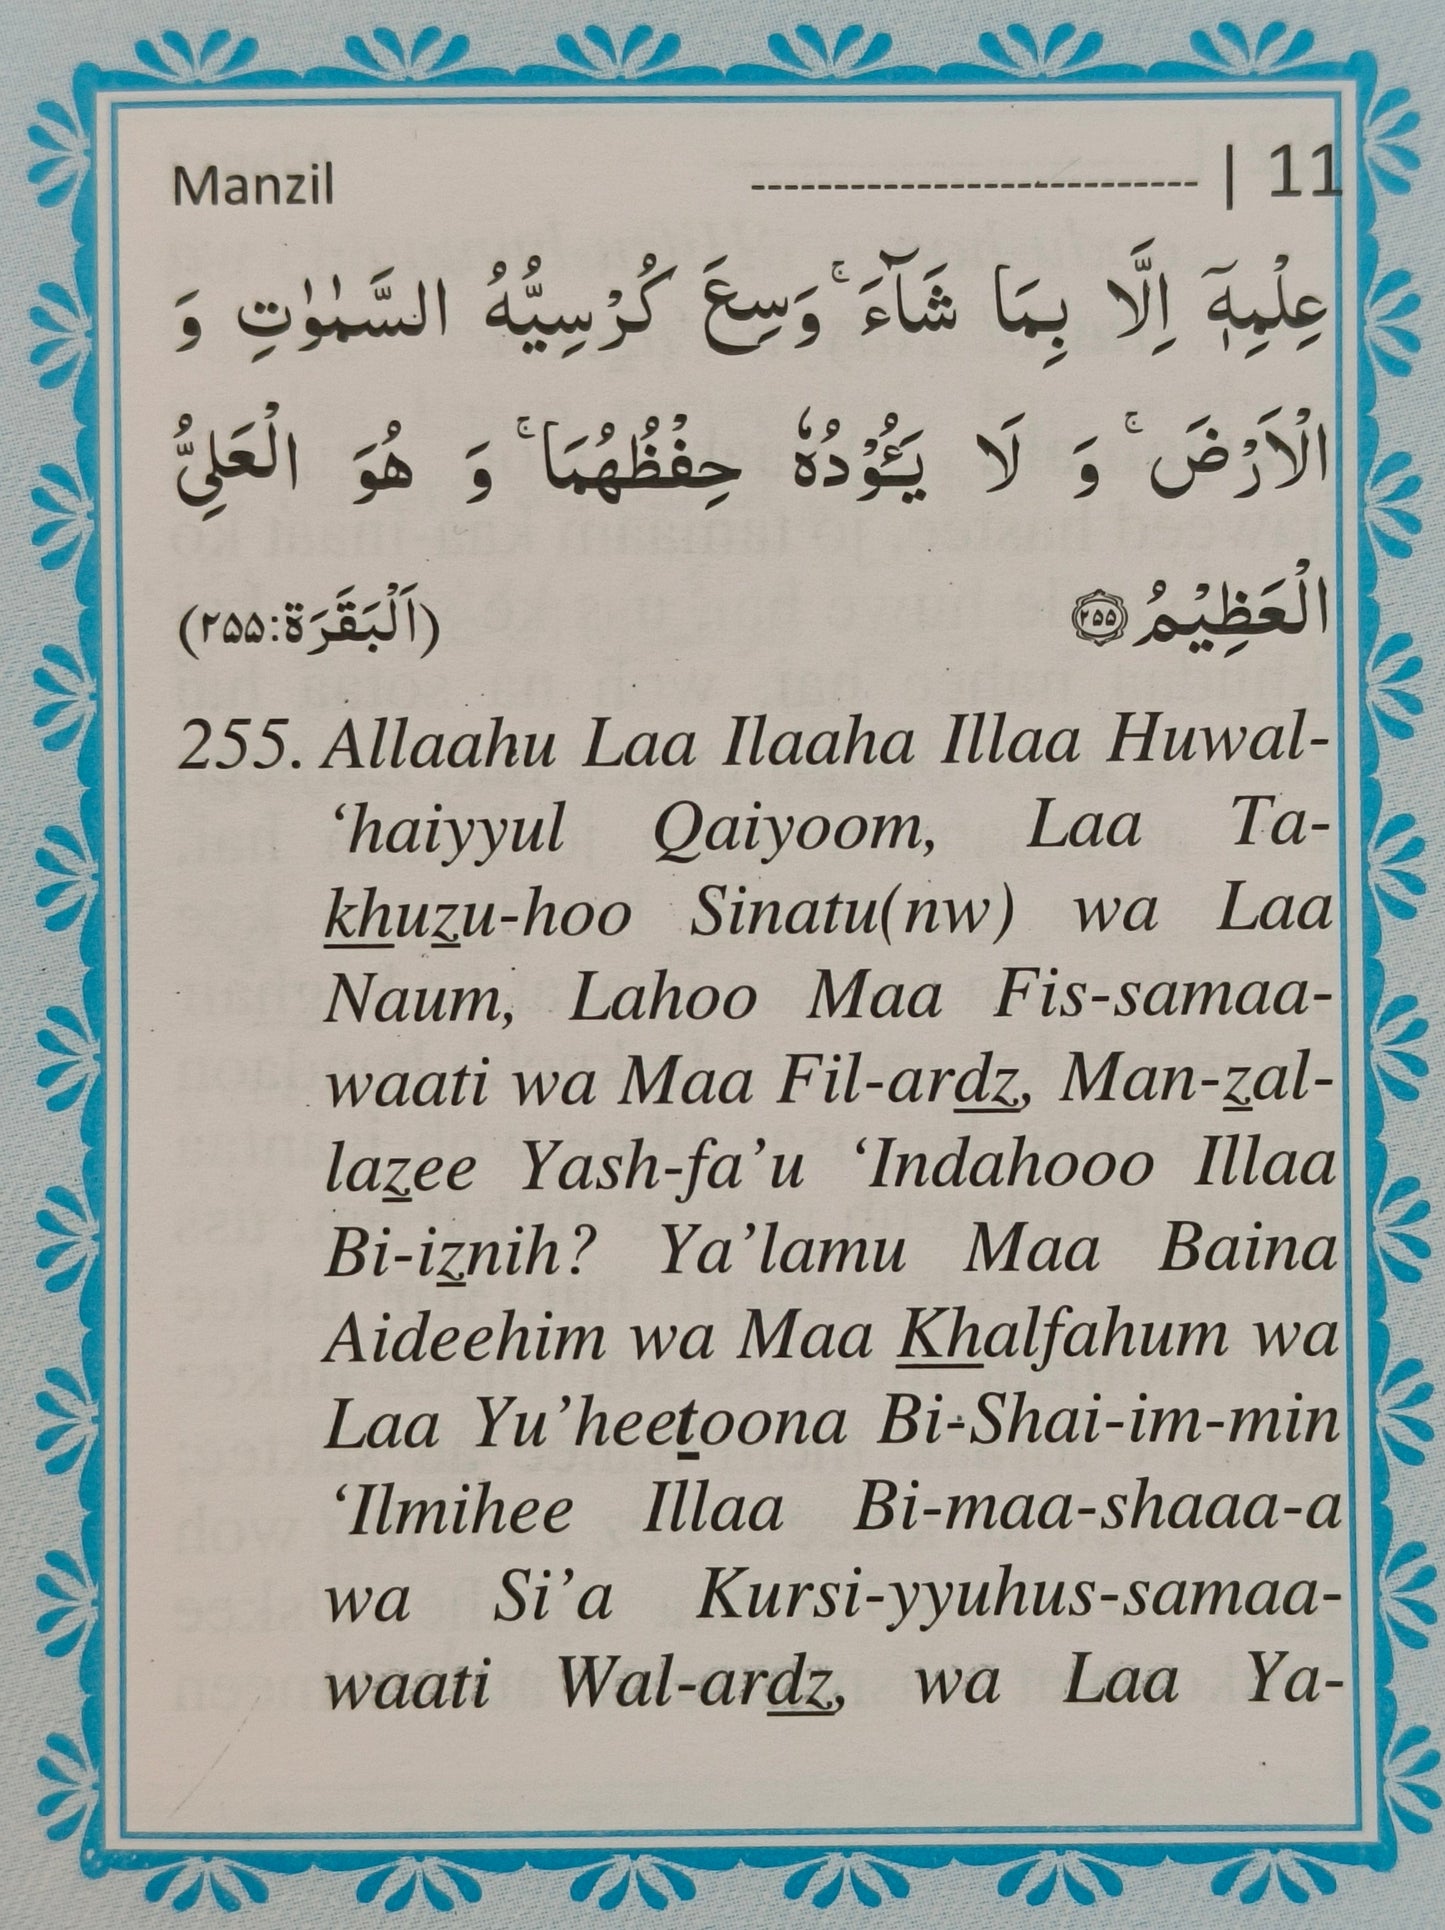 Manzil --------------------------- | 11
عِلْمِهٖۤ اِلَّا بِمَا شَآءَ ۚ وَسِعَ كُرْسِيُّهُ السَّمٰوٰتِ وَ
الْاَرْضَ ۚ وَ لَا يَـُٔوْدُهٗ حِفْظُهُمَا ۚ وَ هُوَ الْعَلِيُّ
الْعَظِيْمُ ۝۲۵۵ (اَلْبَقَرَة:۲۵۵)
255. Allaahu Laa Ilaaha Illaa Huwal-
‘haiyyul Qaiyoom, Laa Ta-
khuzu-hoo Sinatu(nw) wa Laa
Naum, Lahoo Maa Fis-samaa-
waati wa Maa Fil-ardz, Man-zal-
lazee Yash-fa’u ‘Indahooo Illaa
Bi-iznih? Ya’lamu Maa Baina
Aideehim wa Maa Khalfahum wa
Laa Yu’heetoona Bi-Shai-im-min
‘Ilmihee Illaa Bi-maa-shaaa-a
wa Si’a Kursi-yyuhus-samaa-
waati Wal-ardz, wa Laa Ya-